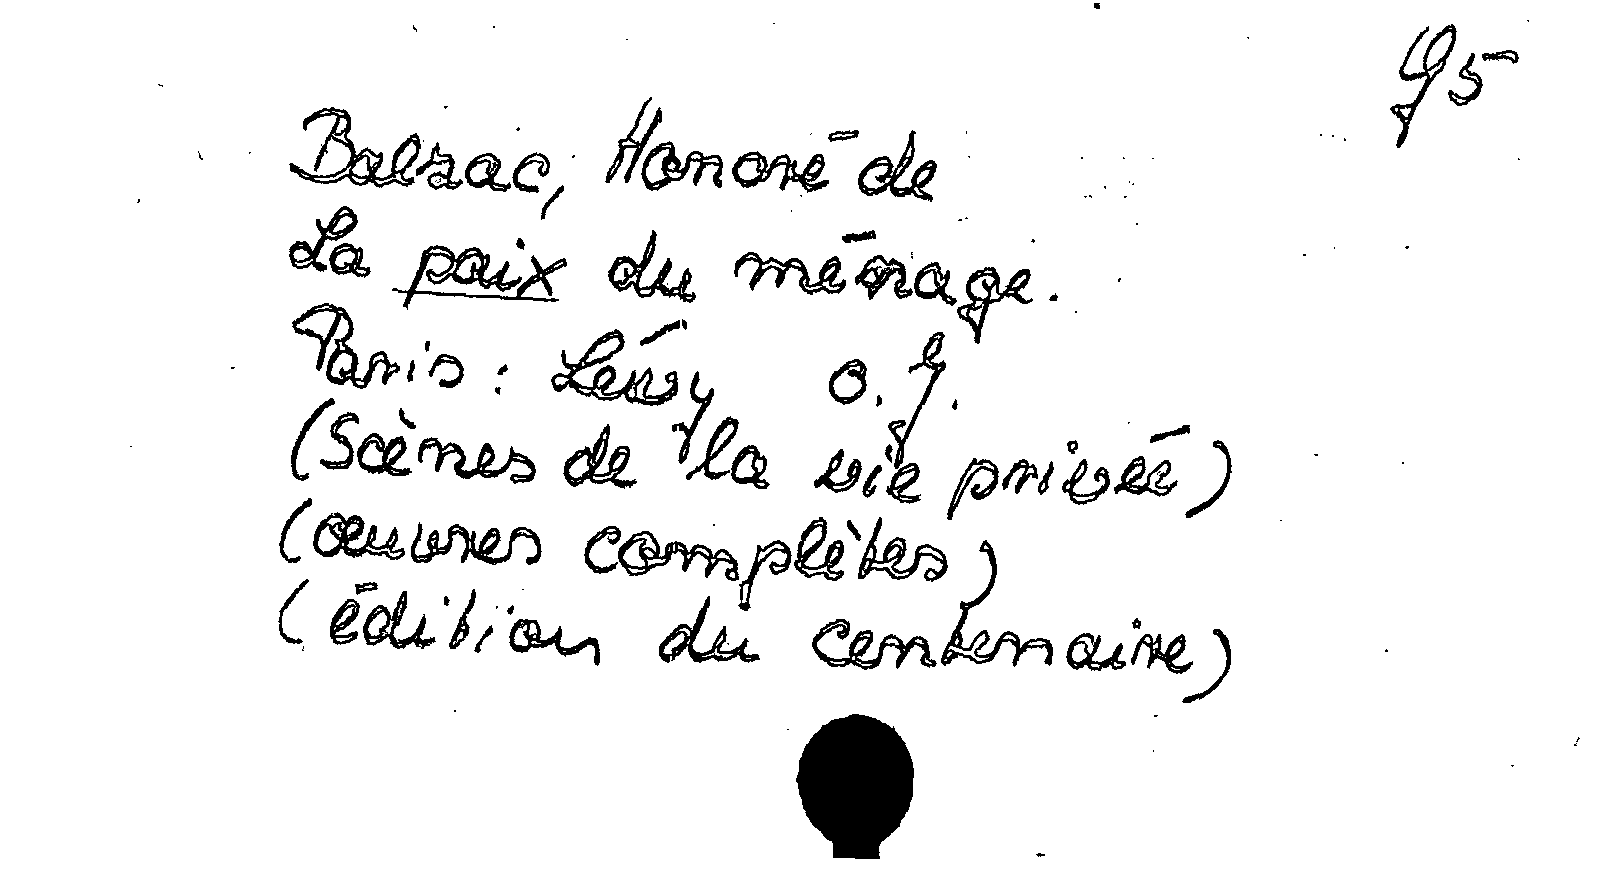 Y5
Balzac, Honoré de
La paix du ménage.
Paris: Lévy o. J.
(Scènes de la vie privée)
(œuvres complètes)
(édition du centenaire)